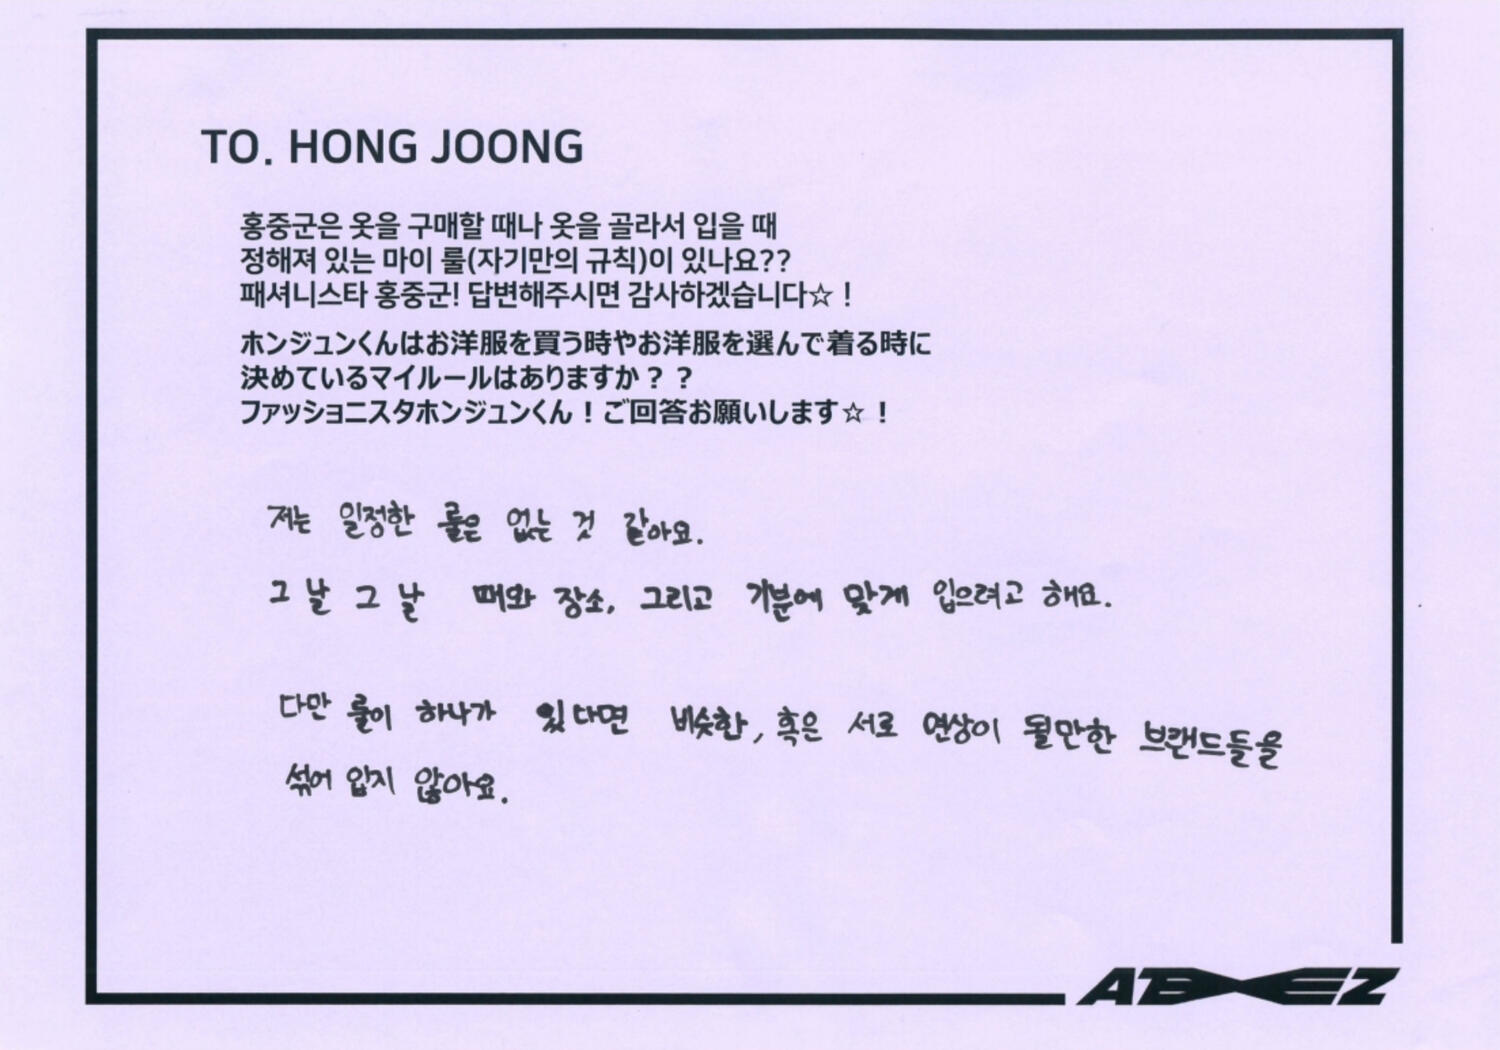 TO. HONG JOONG
홍중군은 옷을 구매할 때나 옷을 골라서 입을 때
정해져 있는 마이 룰(자기만의 규칙)이 있나요??
패셔니스타 홍중군! 답변해주시면 감사하겠습니다☆!
ホンジュンくんはお洋服を買う時やお洋服を選んで着る時に
決めているマイルールはありますか？？
ファッショニスタホンジュンくん！ご回答お願いします☆！
저는 일정한 룰은 없는 것 같아요.
그날 그날 때와 장소, 그리고 기분에 맞게 입으려고 해요.
다만 룰이 하나가 있다면 비슷한, 혹은 서로 연상이 될만한 브랜드들을
섞어 입지 않아요.
ATEEZ